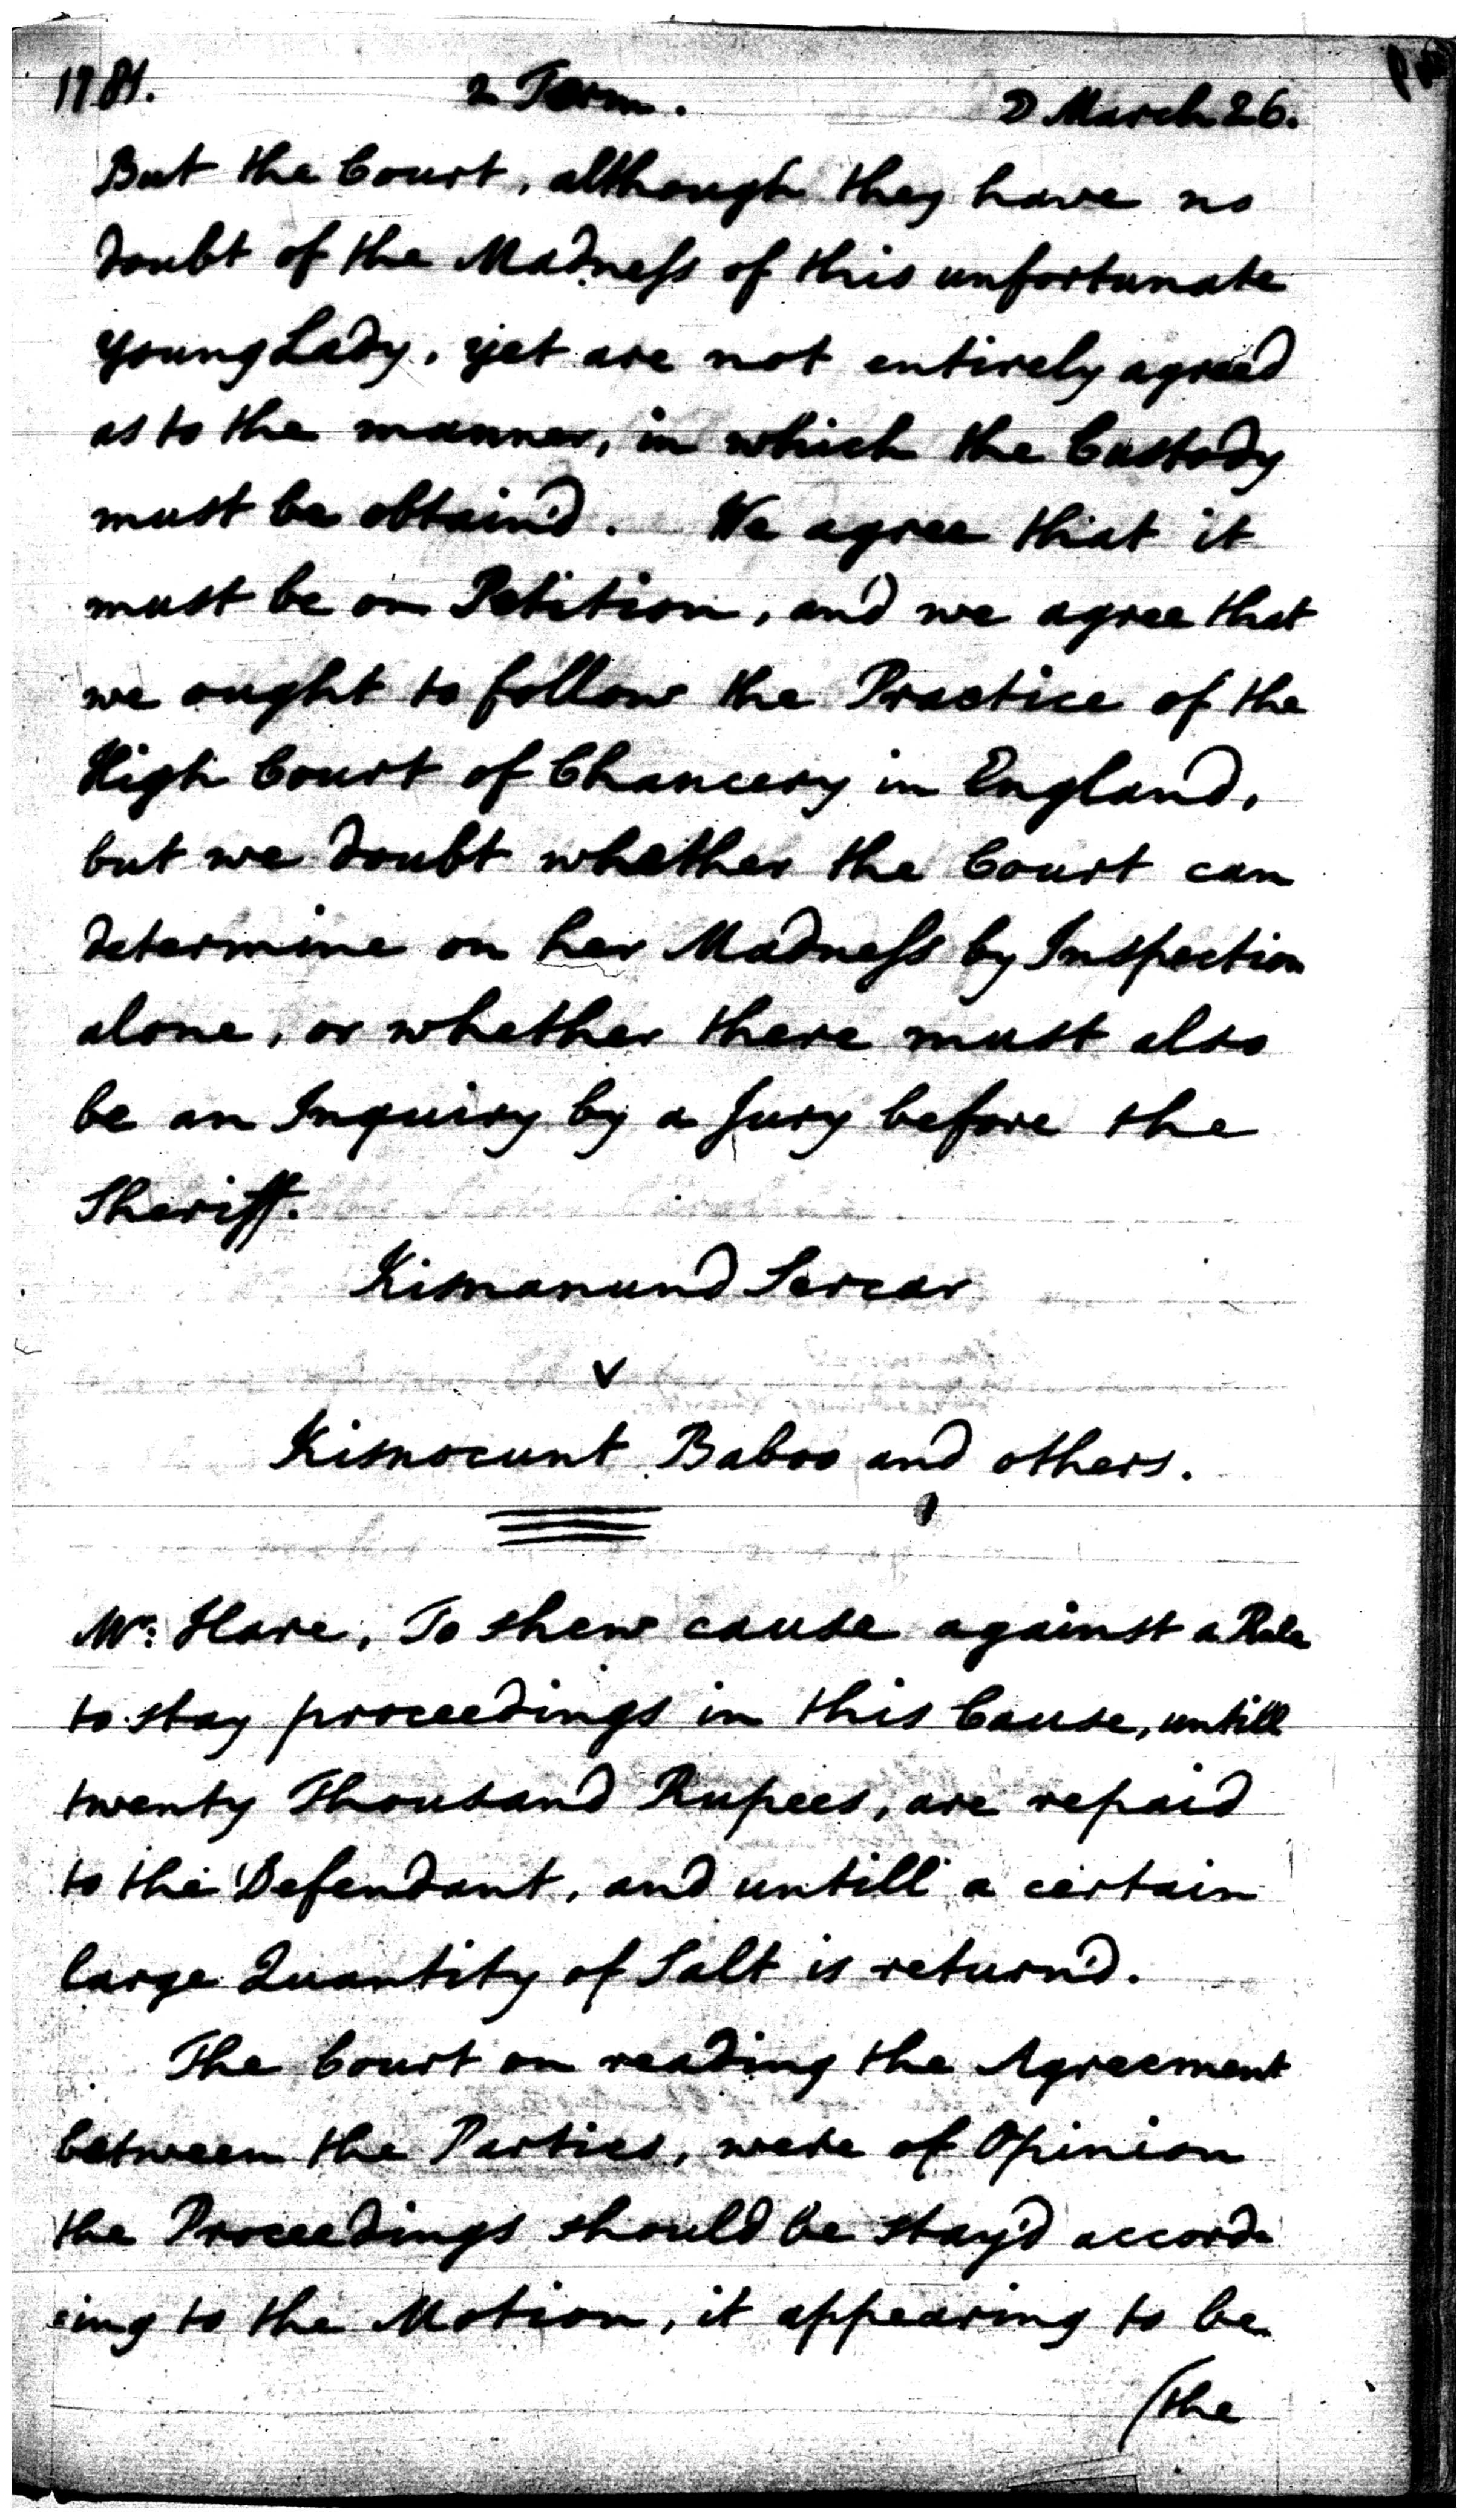 1781. 2 Term. D March 26.
But the Court, although they have no
doubt of the Madneſs of this unfortunate
young Lady, yet are not entirely agreed
as to the manner, in which the Custody
must be obtain'd. We agree that it
must be on Petition, and we agree that
we ought to follow the Practice of the
High Court of Chancery in England,
but we doubt whether the Court can
determine on her Madneſs by Inspection
alone, or whether there must also
be an Inquiry by a Jury before the
Sheriff.
Kisnanund Sercar
v
Kisnocunt Baboo and others.
Mr: Hare, To shew cause against a Rule
to stay proceedings in this Cause, untill
twenty Thousand Rupees, are repaid
to the Defendant, and untill a certain
large Quantity of Salt is return'd.
The Court on reading the Agreement
between the Parties, were of Opinion
the Proceedings should be stay'd accord-
:ing to the Motion, it appearing to be
(the